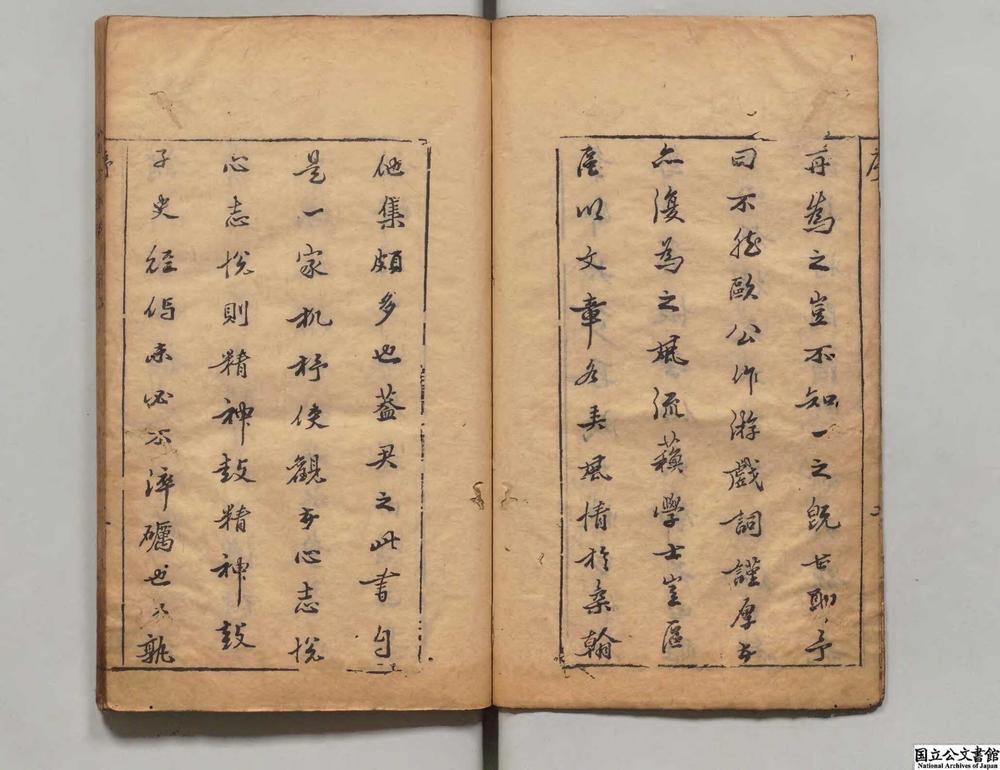 序
再為之豈不知一之既甚耶予
曰不然歐公作游戲詞謹厚者
亦復為之風流蘇學士豈區
區以文章名風情於柔翰
他集頗多也蓋君之此書自
是一家机杼使觀者心志悅
心志悅則精神鼓精神鼓
子史經傳未必不淬礪也孰
序
国立公文書館
National Archives of Japan